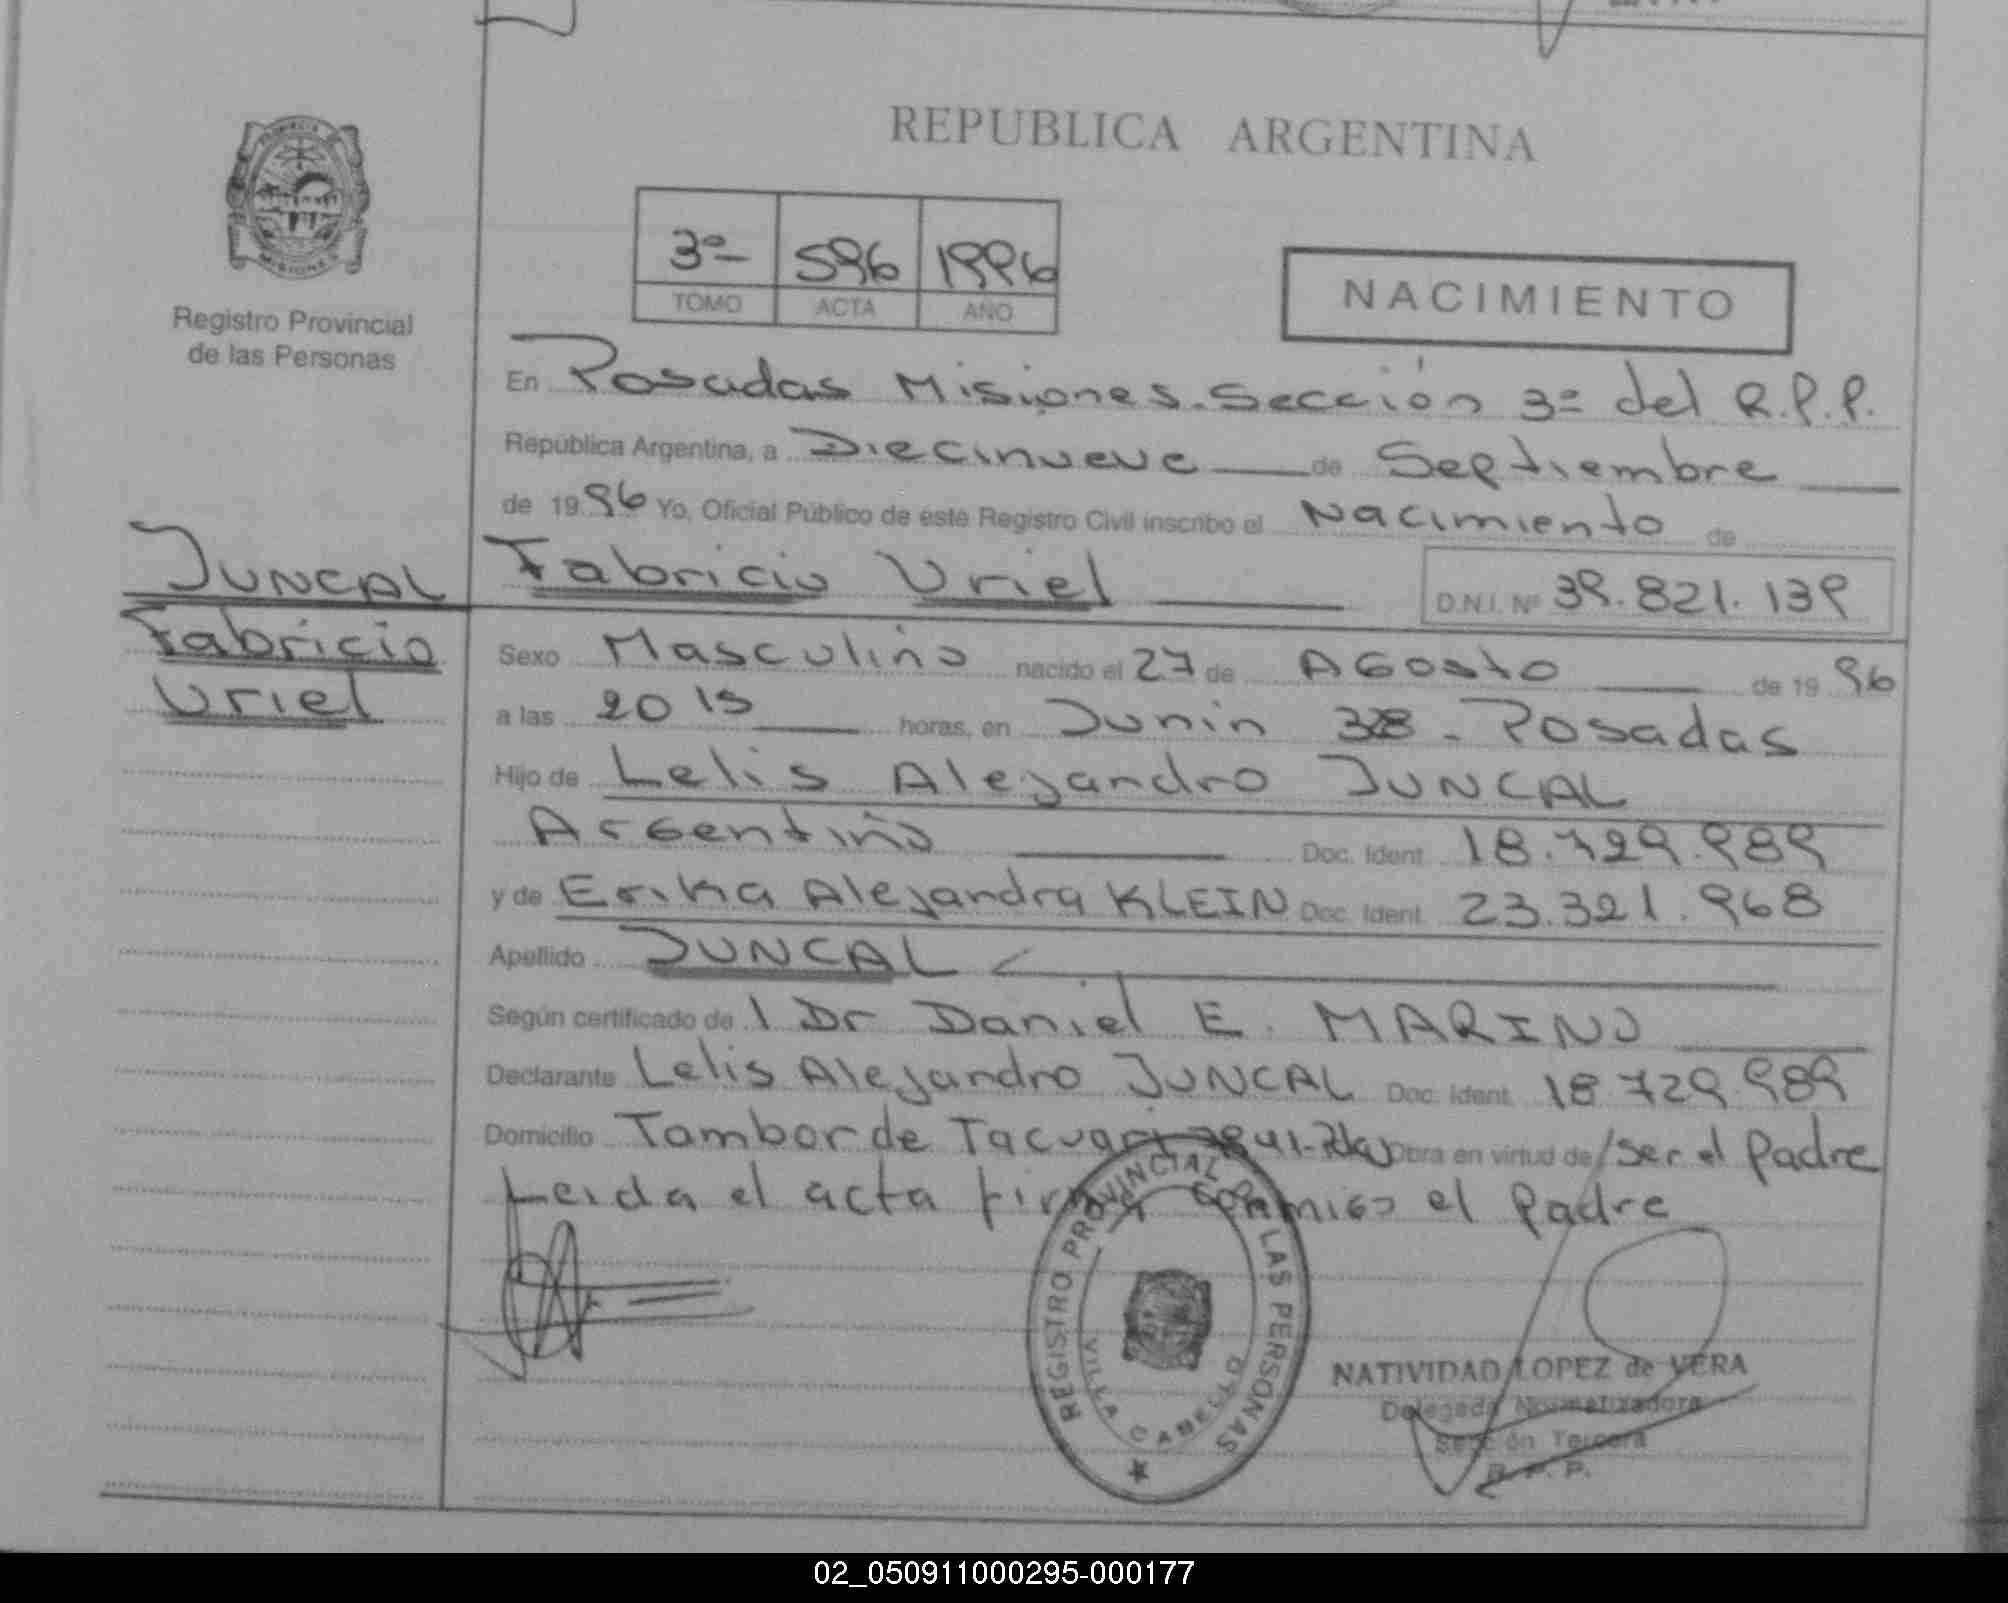 REPUBLICA ARGENTINA
PROVINCIA
MISIONES
Registro Provincial
de las Personas
3º 596 1996
TOMO ACTA AÑO
NACIMIENTO
En Posadas Misiones. Sección 3º del R.P.P.
República Argentina, a Diecinueve de Septiembre
de 1996 Yo, Oficial Público de este Registro Civil inscribo el Nacimiento de
JUNCAL Fabricio Uriel D.N.I. Nº 39.821.139
Fabricio
Uriel
Sexo Masculino nacido el 27 de Agosto de 1996
a las 20 15 horas, en Junin Posadas
Hijo de Lelis Alejandro JUNCAL
Argentino Doc. Ident. 18.729.989
y de Erika Alejandra KLEIN Doc. Ident. 23.321.968
Apellido JUNCAL
Según certificado de 1 Dr Daniel E. MARINO
Declarante Lelis Alejandro JUNCAL Doc. Ident. 18.729.989
Domicilio Tambor de Tacuari Obra en virtud de / ser el Padre
Leida el acta firma conmigo el Padre
REGISTRO PROVINCIAL DE LAS PERSONAS
VILLA CABELLO
NATIVIDAD LOPEZ de VERA
Delegada Normalizadora
Sección Tercera
R. P. P.
02_050911000295-000177